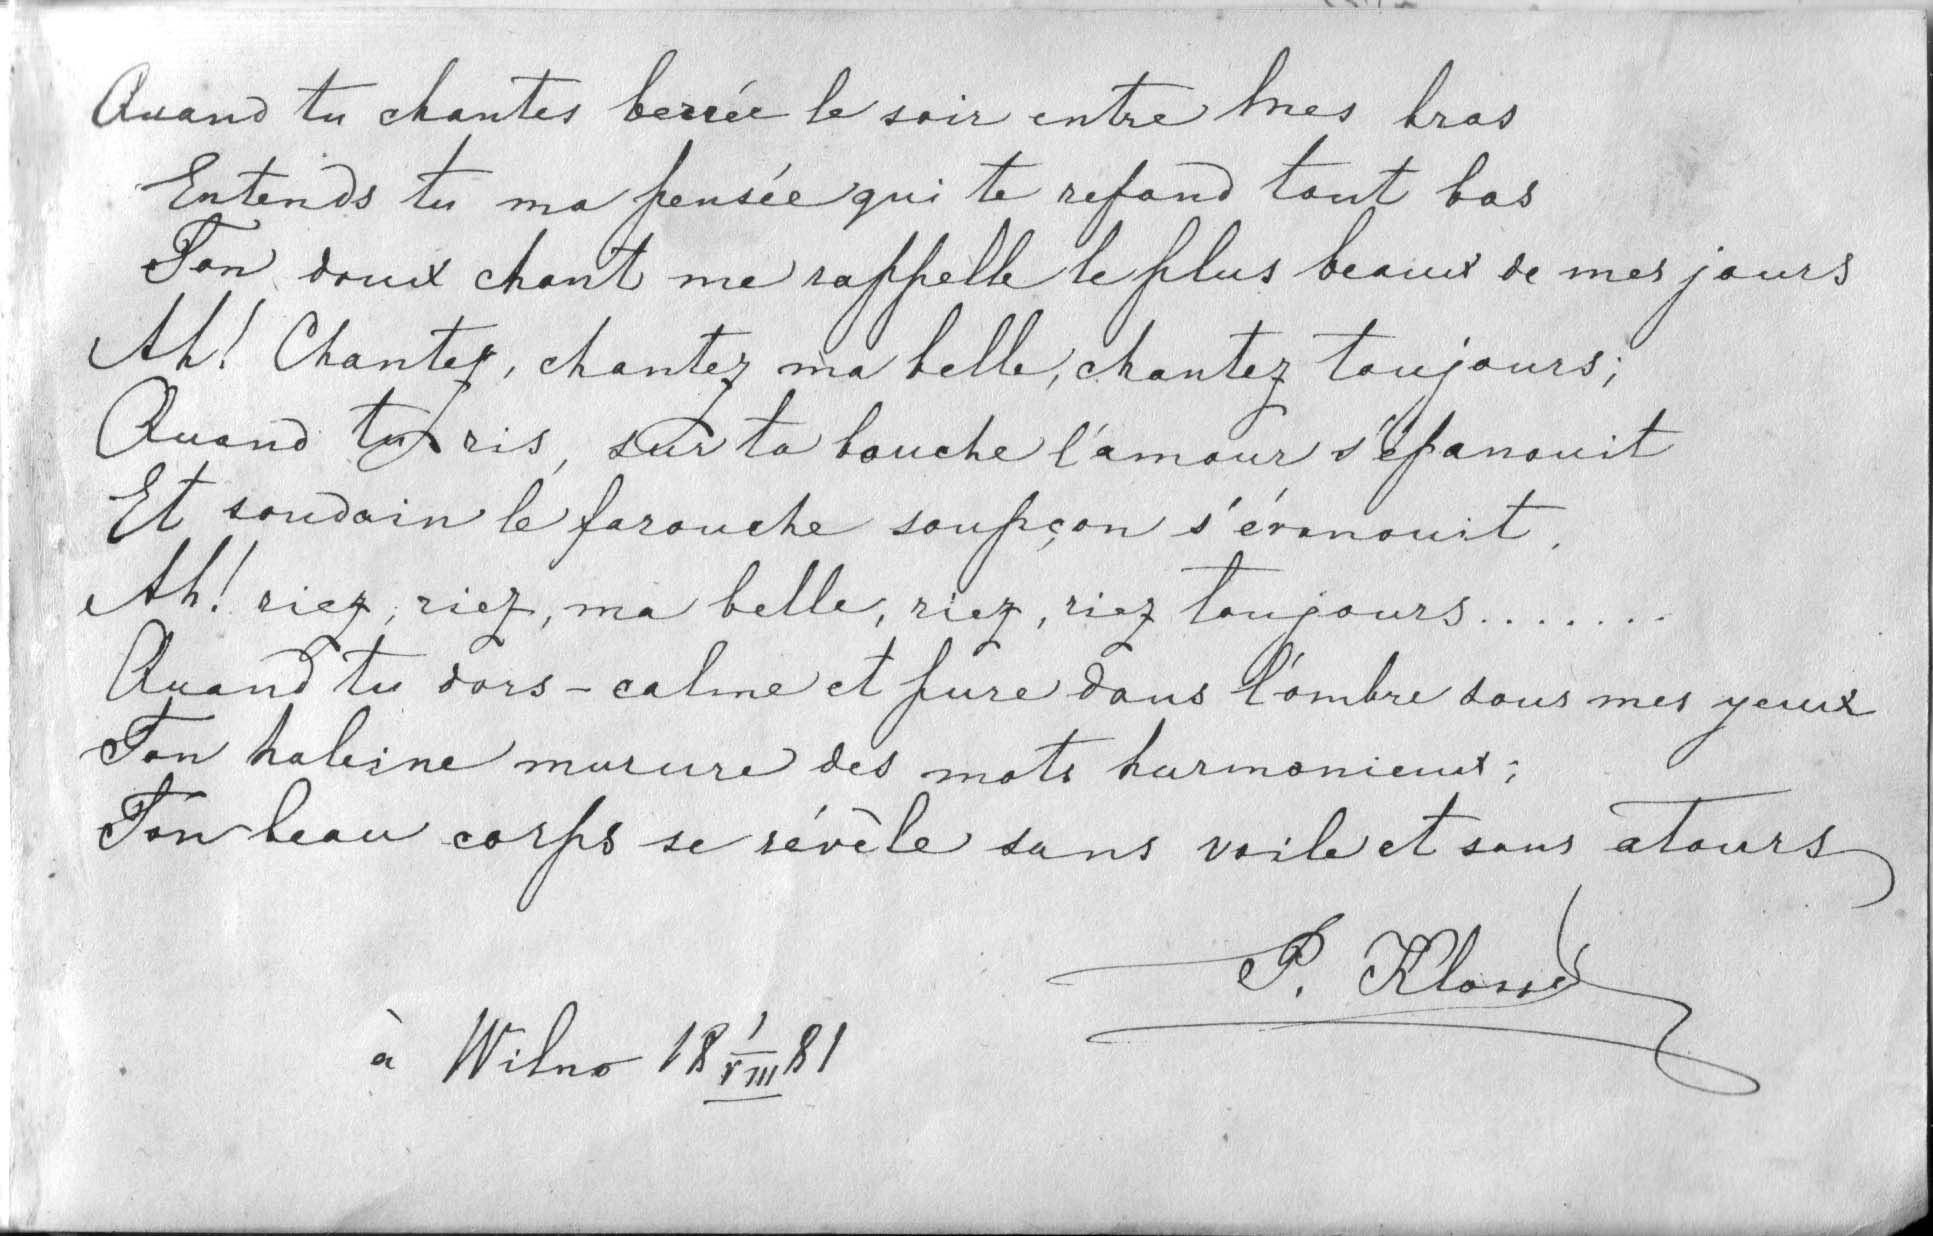 Quand tu chantes bercée le soir entre mes bras
Entends tu ma pensée qui te refond tout bas
Ton doux chant me rappelle le plus beaux de mes jours
Ah! Chantez, chantez ma belle, chantez toujours;
Quand tu ris, sur ta bouche l'amour s'épanouit
Et soudain le farouche soupçon s'évanouit.
Ah! riez, riez, ma belle, riez, riez toujours.......
Quand tu dors - calme et pure dans l'ombre sous mes yeux
Ton haleine murure des mots harmonieux;
Ton beau corps se révèle sans voile et sans atours
P.
à Wilno 18 1/VIII 81